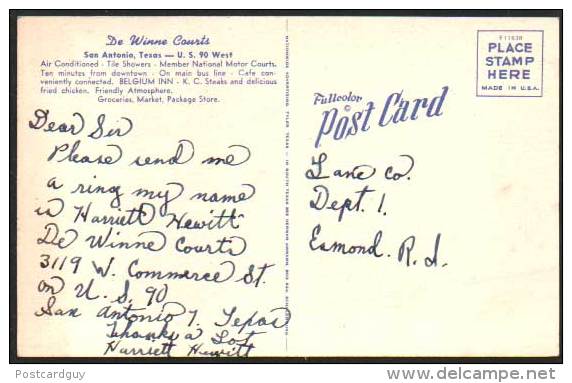 De Winne Courts
San Antonio, Texas — U. S. 90 West
Air Conditioned - Tile Showers - Member National Motor Courts.
Ten minutes from downtown - On main bus line - Cafe con-
veniently connected. BELGIUM INN - K. C. Steaks and delicious
fried chicken. Friendly Atmosphere.
Groceries, Market, Package Store.
Dear Sir
Please send me
a ring my name
is Harriett Hewitt
De Winne Courts
3119 W. Commerce St.
on U. S. 90
San Antonio 7, Texas
Thanks a Lot
Harriett Hewitt
Fullcolor
©
Post Card
PLACE
STAMP
HERE
MADE IN U.S.A.
Lane Co.
Dept. 1.
Esmond. R. I.
Postcardguy
www.delcampe.net